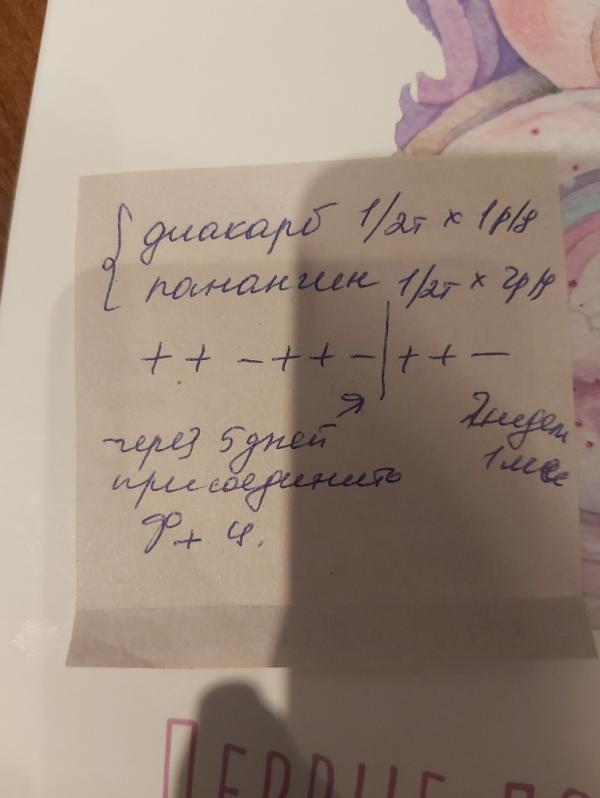 диакарб 1/2т × 1р/д
панангин 1/2т × 2р/д
+ + – + + – | + + –
через 5 дней
присоединить
Ф + Ц.
1 мес
ПЕРВЫЕ